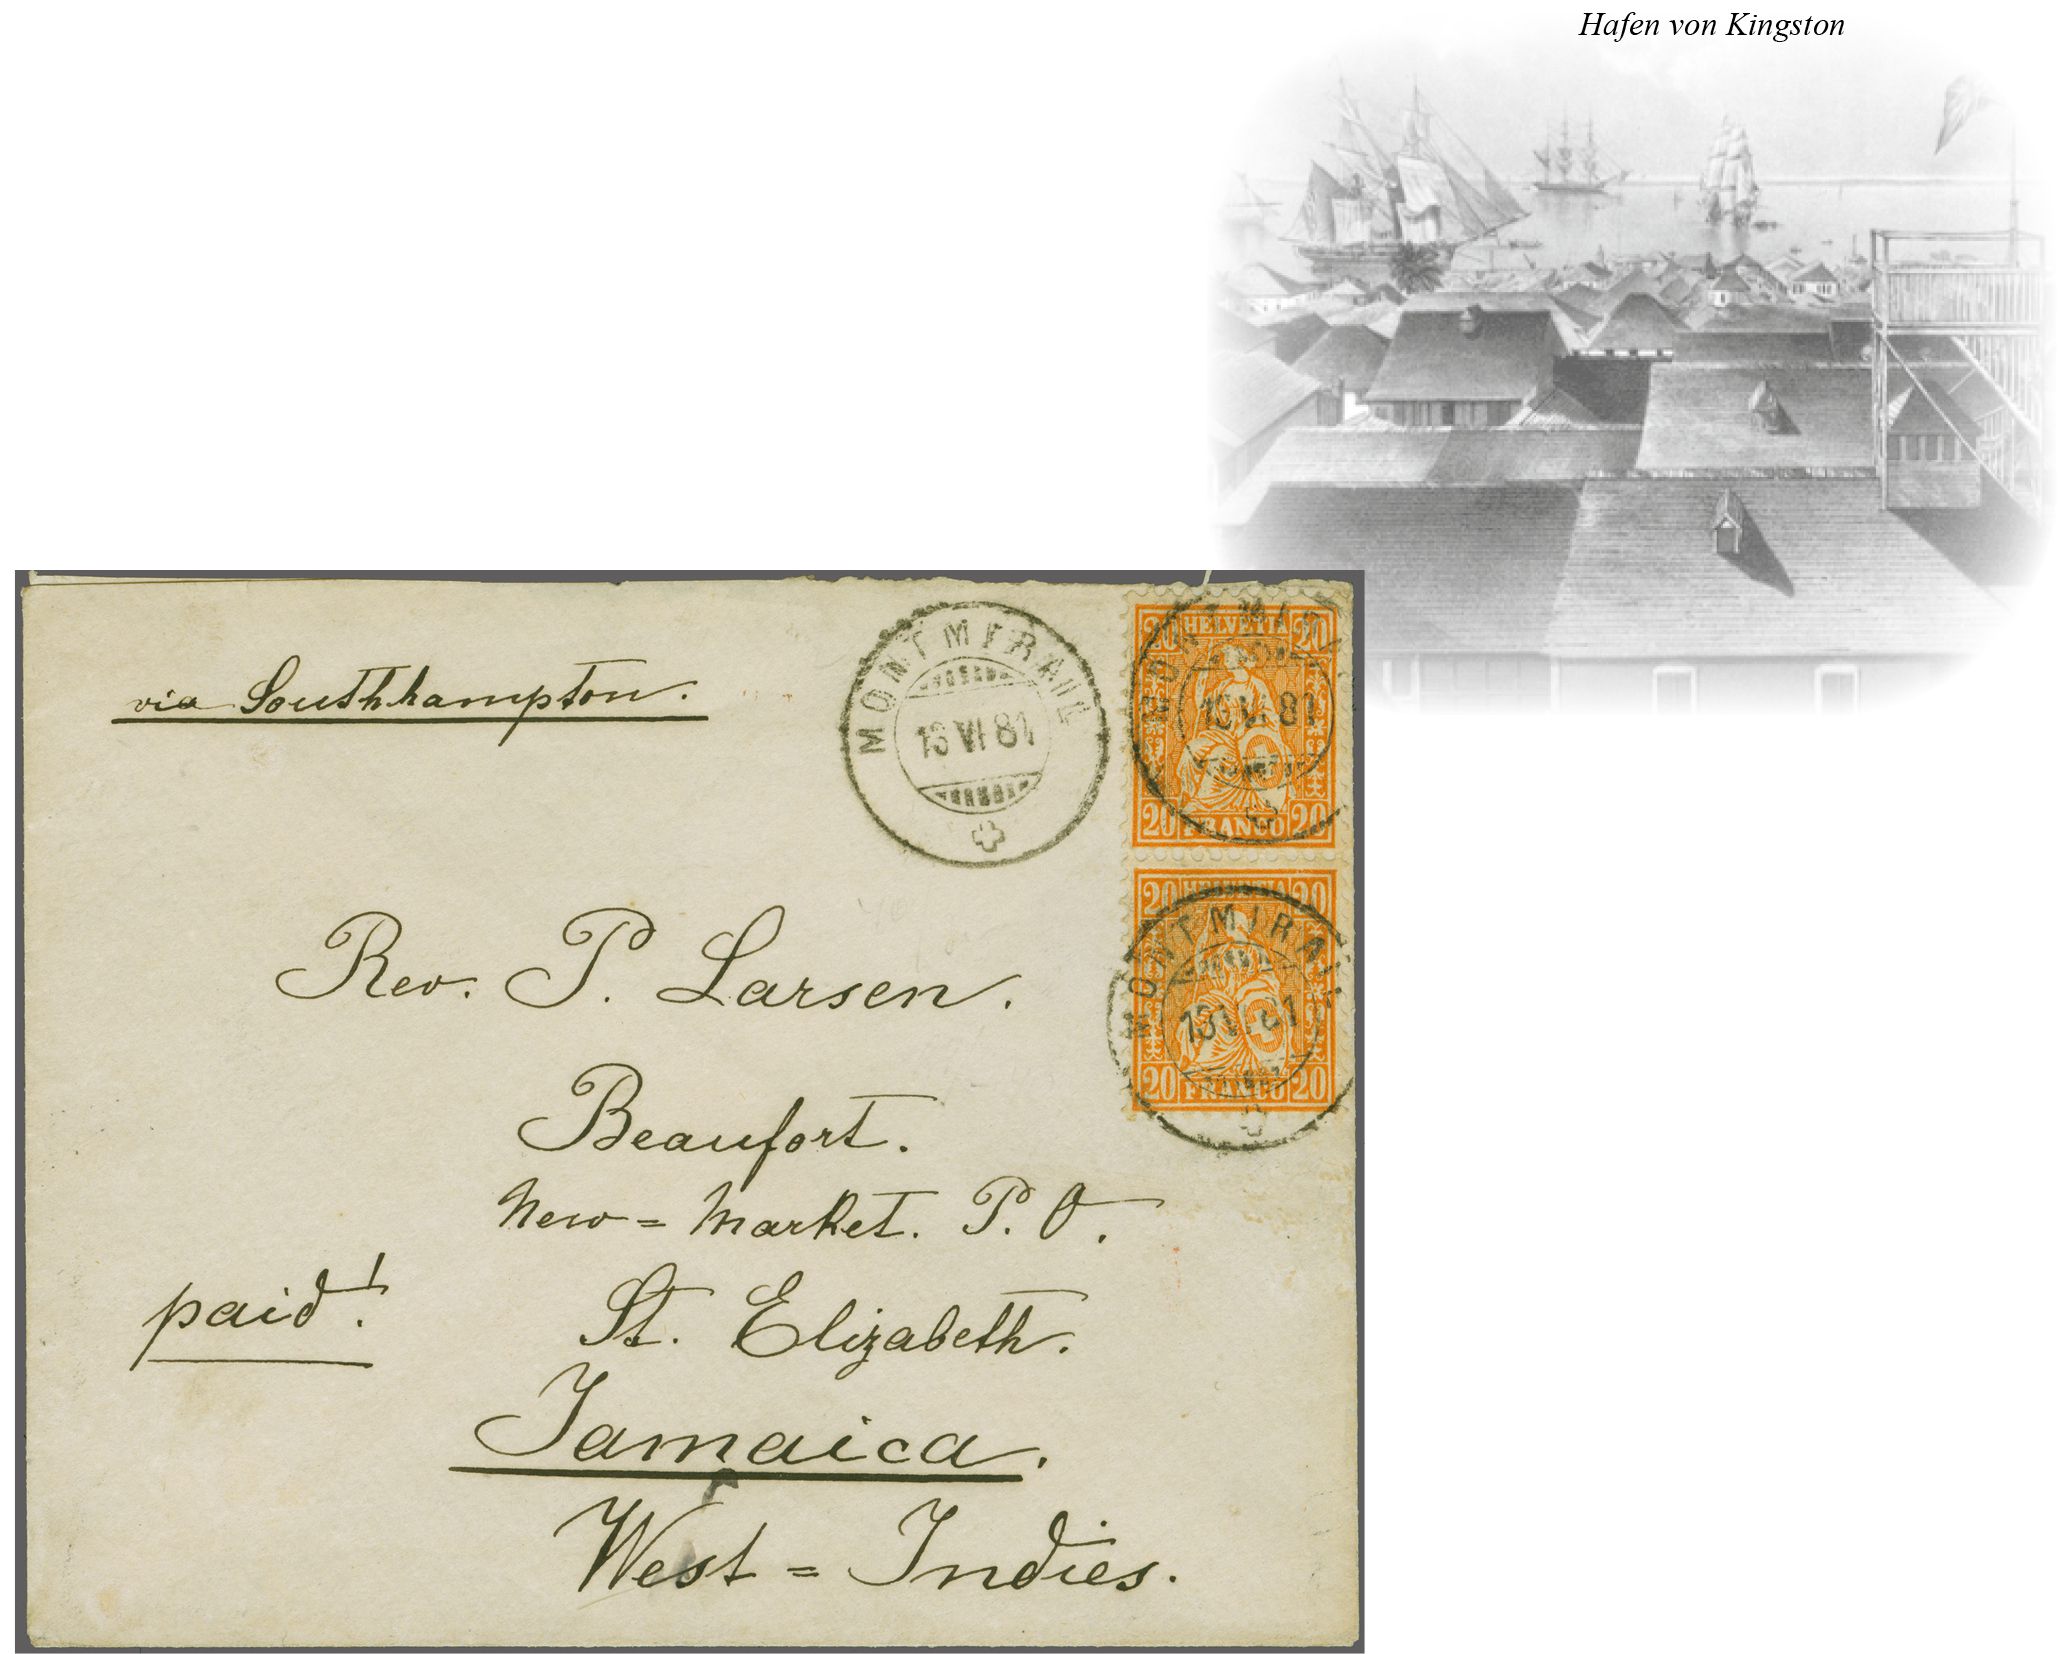 Hafen von Kingston
via Southhampton.
MONTMIRAIL
13 VI 81
20 HELVETIA 20
20 FRANCO 20
20 HELVETIA 20
MONTMIRAIL
20 FRANCO 20
Rev. P. Larsen.
Beaufort.
New=Market. P. O.
paid!
St. Elizabeth.
Jamaica.
West=Indies.